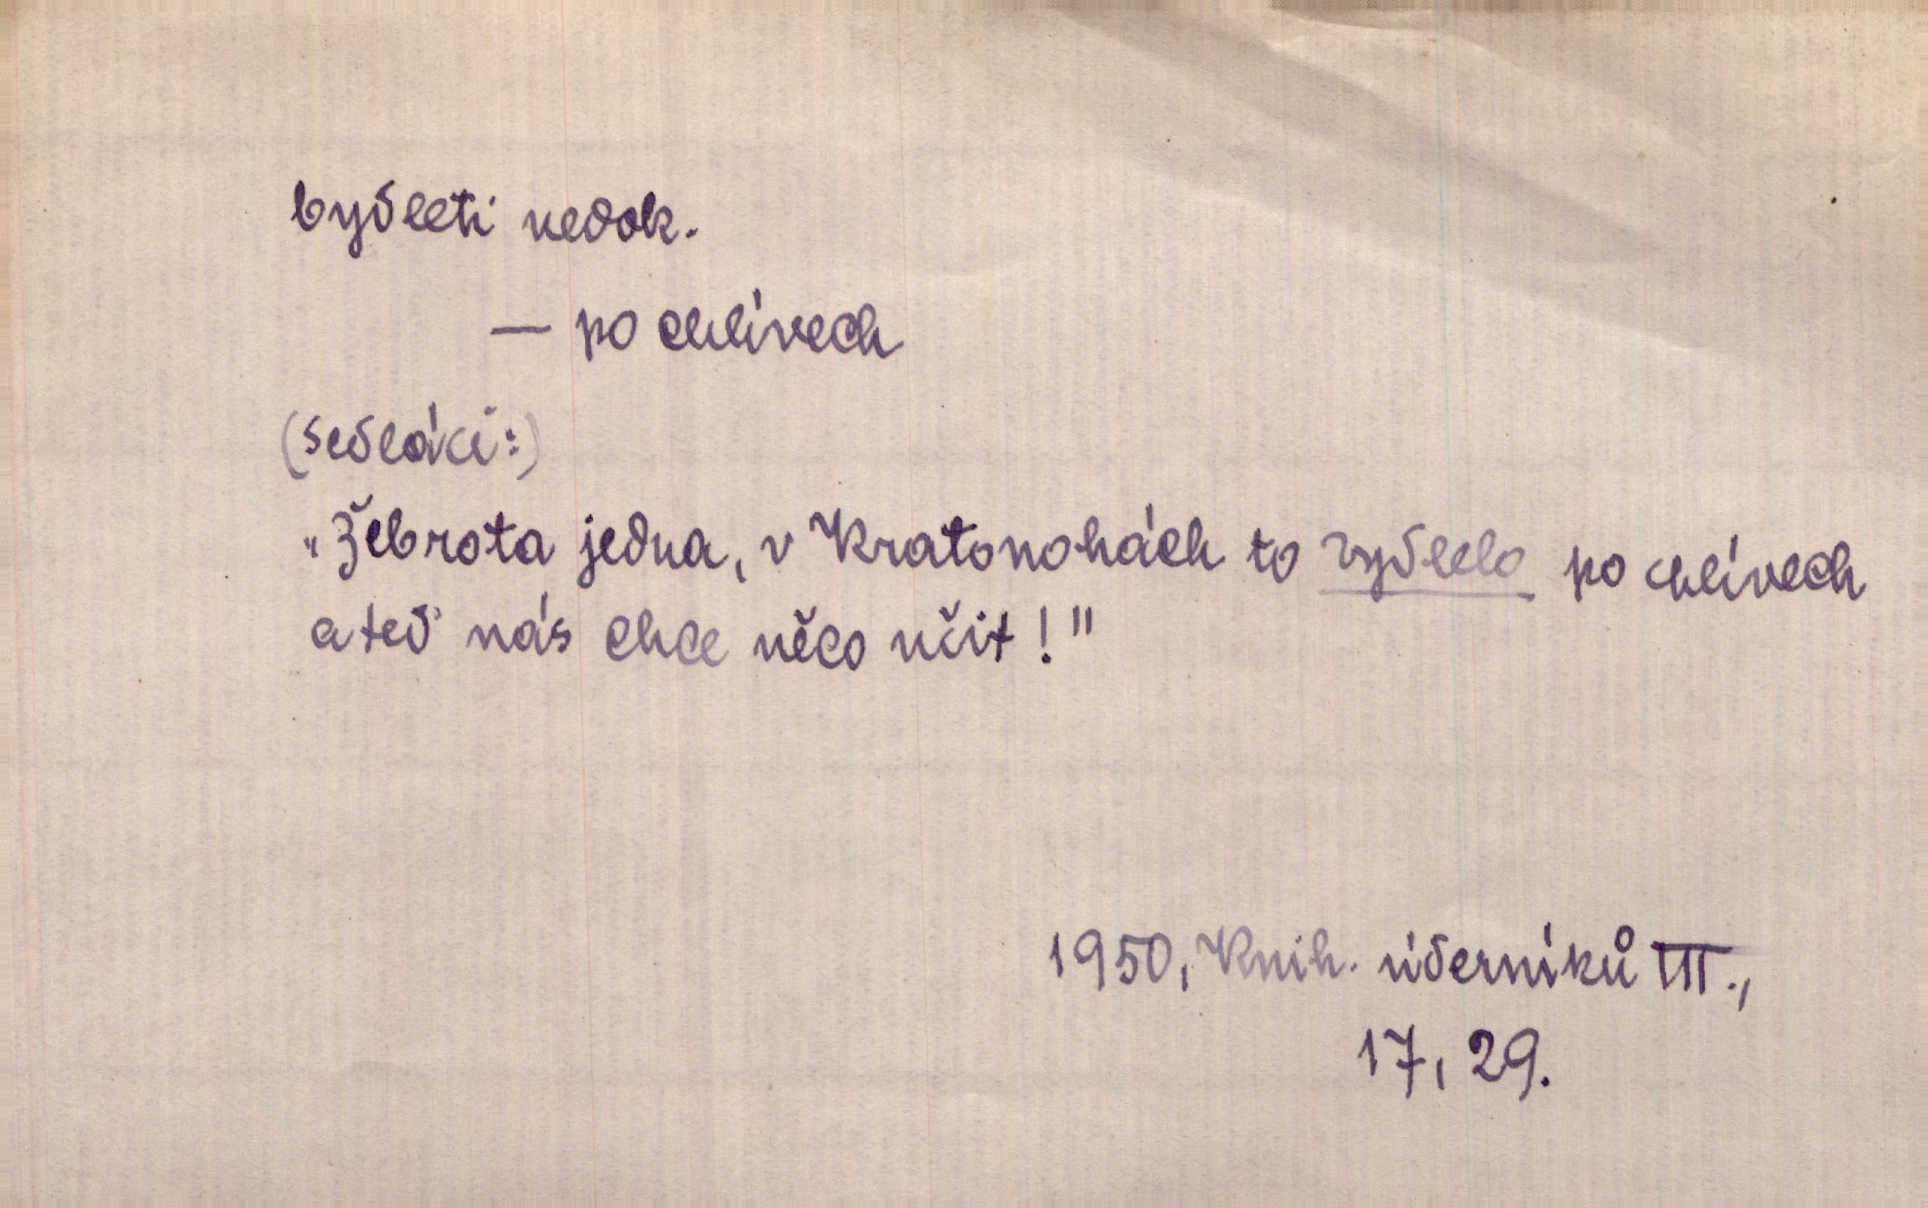 bydleti nedok.
— po chlívech
(sedláci:)
"Žebrota jedna, v Kratonohách to bydlelo po chlívech
a teď nás chce něco učit!"
1950, Knih. úderníků III.,
17, 29.